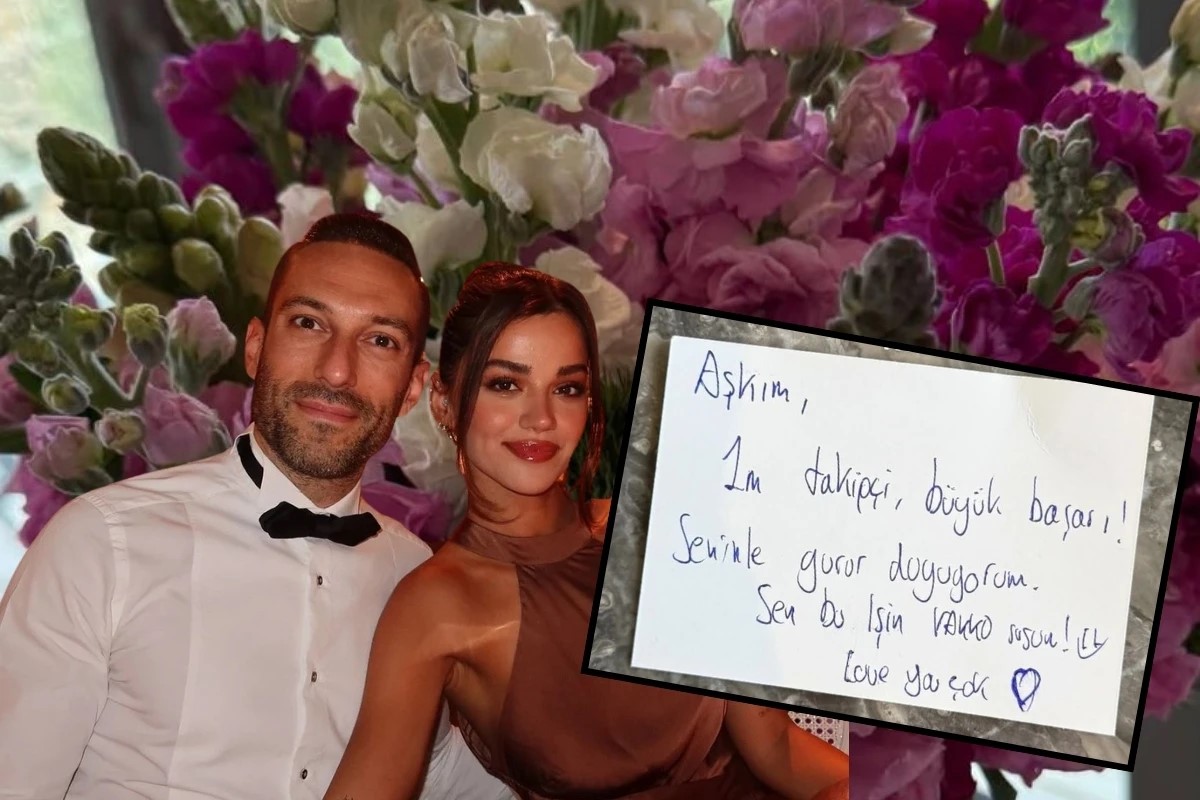 Aşkım,
1m takipçi, büyük başarı!
Seninle gurur duyuyorum.
Sen bu Işin VAKKO susun!
Love you çok